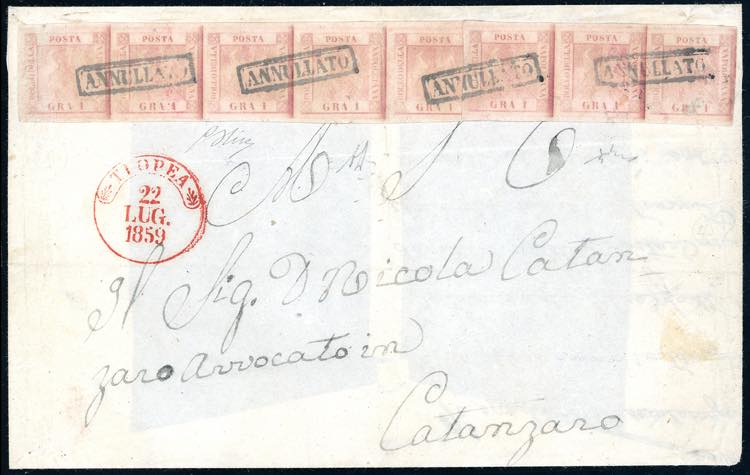 POSTA POSTA POSTA POSTA POSTA POSTA POSTA POSTA
ANNULLATO ANNULLATO ANNULLATO ANNULLATO
GRA 1 GRA 1 GRA 1 GRA 1 GRA 1 GRA 1 GRA 1 GRA 1
TROPEA
22
LUG.
1859
Il Sig. D Nicola Catan
zaro Avvocato in
Catanzaro